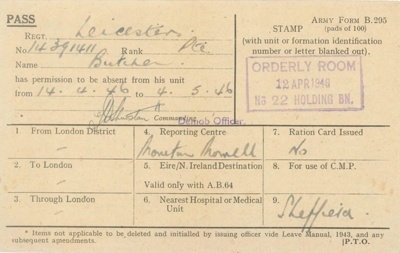 PASS
ARMY FORM B.295
(pads of 100)
REGT. Leicesters
STAMP
(with unit or formation identification
number or letter blanked out).
No 14391411 Rank Pte.
Name Butcher
ORDERLY ROOM
12 APR 1946
No 22 HOLDING BN.
has permission to be absent from his unit
from 14. 4. 46 to 4. 5. 46
Commanding
Demob Officer.
1 From London District
4. Reporting Centre
7. Ration Card Issued
No
2. To London
5. Eire/N. Ireland Destination
Valid only with A.B.64
8. For use of C.M.P.
3. Through London
6. Nearest Hospital or Medical
Unit
9. Sheffield.
* Items not applicable to be deleted and initialled by issuing officer vide Leave Manual, 1943, and any
subsequent amendments.
[P.T.O.